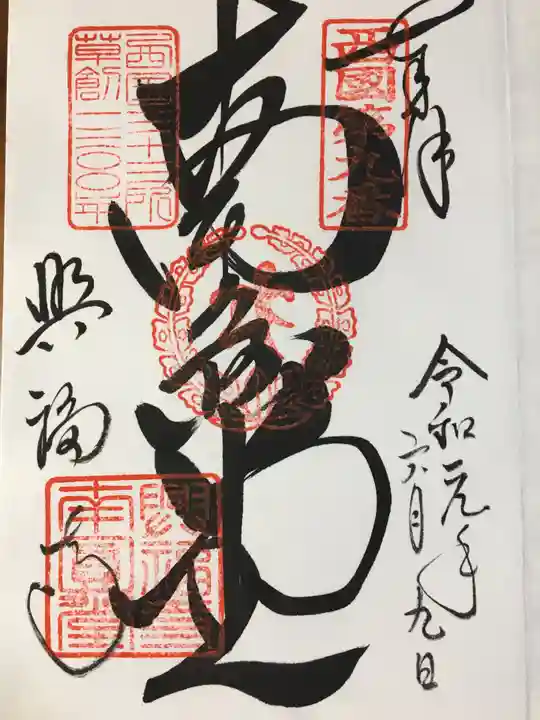 奉拝
令和元年
六月九日
西國第九番
南圓堂
西国三十三所
草創一三〇〇年
興福寺
興福寺
南圓堂